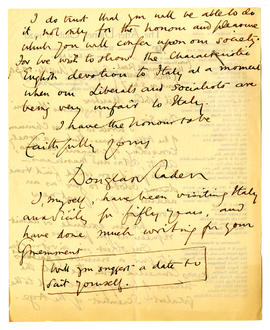 I do trust that you will be able to do
it, not only for the honour and pleasure
which you will confer upon our society
for we wish to show the characteristic
English devotion to Italy at a moment
when our Liberals and Socialists are
being very unfair to Italy.
I have the honour to be
faithfully yours
Douglas Sladen
I, myself, have been visiting Italy
for fifty years, and
have done much writing for your
Government
Will you suggest a date to
suit yourself.